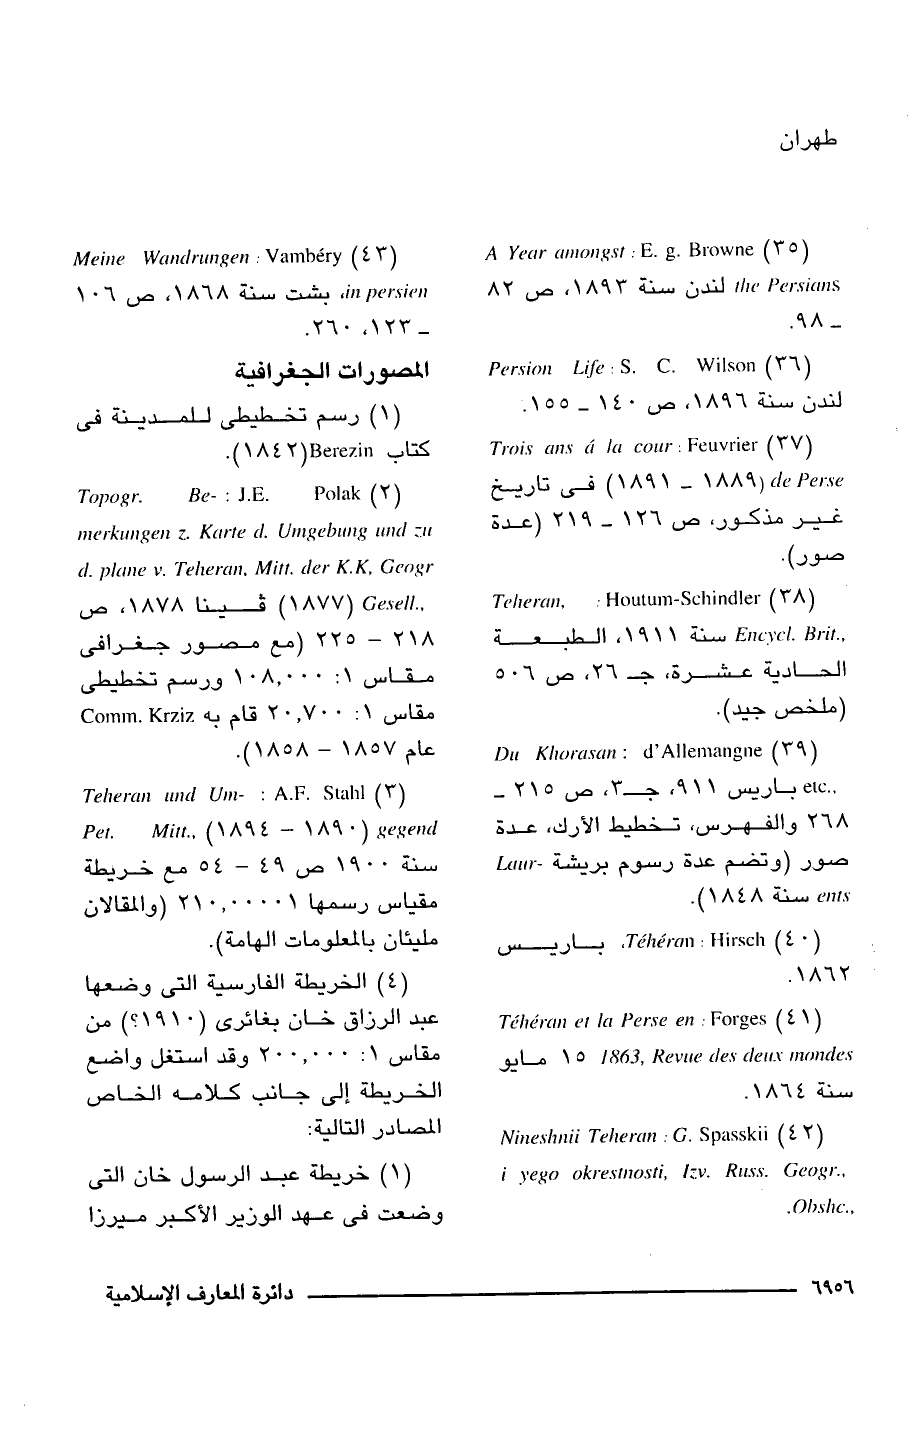 طهران
(٣٥) A Year amongst : E. g. Browne
the Persians لندن سنة ١٨٩٣، ص ٨٢
ـ ٩٨.
(٣٦) Persion Life : S. C. Wilson
لندن سنة ١٨٩٦، ص ١٤٠ ـ ١٥٥.
(٣٧) Trois ans á la cour : Feuvrier
de Perse (١٨٨٩ ـ ١٨٩١) فى تاريخ
غير مذكور، ص ١٢٦ ـ ٢١٩ (عدة
صور).
(٣٨) Teheran, : Houtum-Schindler
Encycl. Brit., سنة ١٩١١، الطبعة
الحادية عشرة، جـ ٢٦، ص ٥٠٦
(ملخص جيد).
(٣٩) Du Khorasan : d'Allemangne
etc., باريس ٩١١، جـ٣، ص ٢١٥ ـ
٢٦٨ والفهرس، تخطيط الأرك، عدة
صور (وتضم عدة رسوم بريشة Laur-
ents سنة ١٨٤٨).
(٤٠) Téhéran : Hirsch. باريس
١٨٦٢.
(٤١) Téhéran et la Perse en : Forges
1863, Revue des deux mondes ١٥ مايو
سنة ١٨٦٤.
(٤٢) Nineshnii Teheran : G. Spasskii
i yego okrestnosti, Izv. Russ. Geogr.,
Obshc.,.
(٤٣) Meine Wandrungen : Vambéry
in persien، بشت سنة ١٨٦٨، ص ١٠٦
ـ ١٢٣، ٢٦٠.
المصورات الجغرافية
(١) رسم تخطيطى للمدينة فى
كتاب Berezin (١٨٤٢).
(٢) Topogr. Be- : J.E. Polak
merkungen z. Karte d. Umgebung und zu
d. plane v. Teheran, Mitt. der K.K, Geogr
Gesell., (١٨٧٧) ڤينا ١٨٧٨، ص
٢١٨ – ٢٢٥ (مع مصور جغرافى
مقاس ١: ١٠٨,٠٠٠ ورسم تخطيطى
مقاس ١: ٢٠,٧٠٠ قام به Comm. Krziz
عام ١٨٥٧ – ١٨٥٨).
(٣) Teheran und Um- : A.F. Stahl
gegend (١٨٩٠ – ١٨٩٤) Pet. Mitt.,
سنة ١٩٠٠ ص ٤٩ – ٥٤ مع خريطة
مقياس رسمها ٢١٠,٠٠٠٠١ (والمقالان
مليئان بالمعلومات الهامة).
(٤) الخريطة الفارسية التى وضعها
عبد الرزاق خان بغائرى (١٩١٠؟) من
مقاس ١: ٢٠٠,٠٠٠ وقد استغل واضع
الخريطة إلى جانب كلامه الخاص
المصادر التالية:
(١) خريطة عبد الرسول خان التى
وضعت فى عهد الوزير الأكبر ميرزا
٦٩٥٦ دائرة المعارف الإسلامية